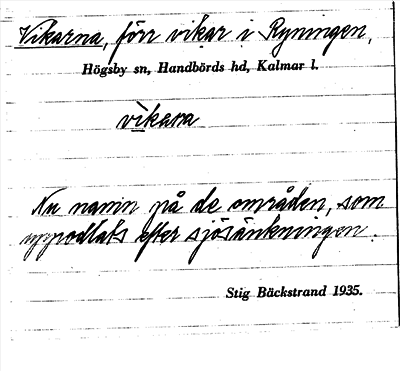 Vikarna, förr vikar i Ryningen,
Högsby sn, Handbörds hd, Kalmar l.
vìkana
Nu namn på de områden, som
uppodlats efter sjösänkningen.
Stig Bäckstrand 1935.